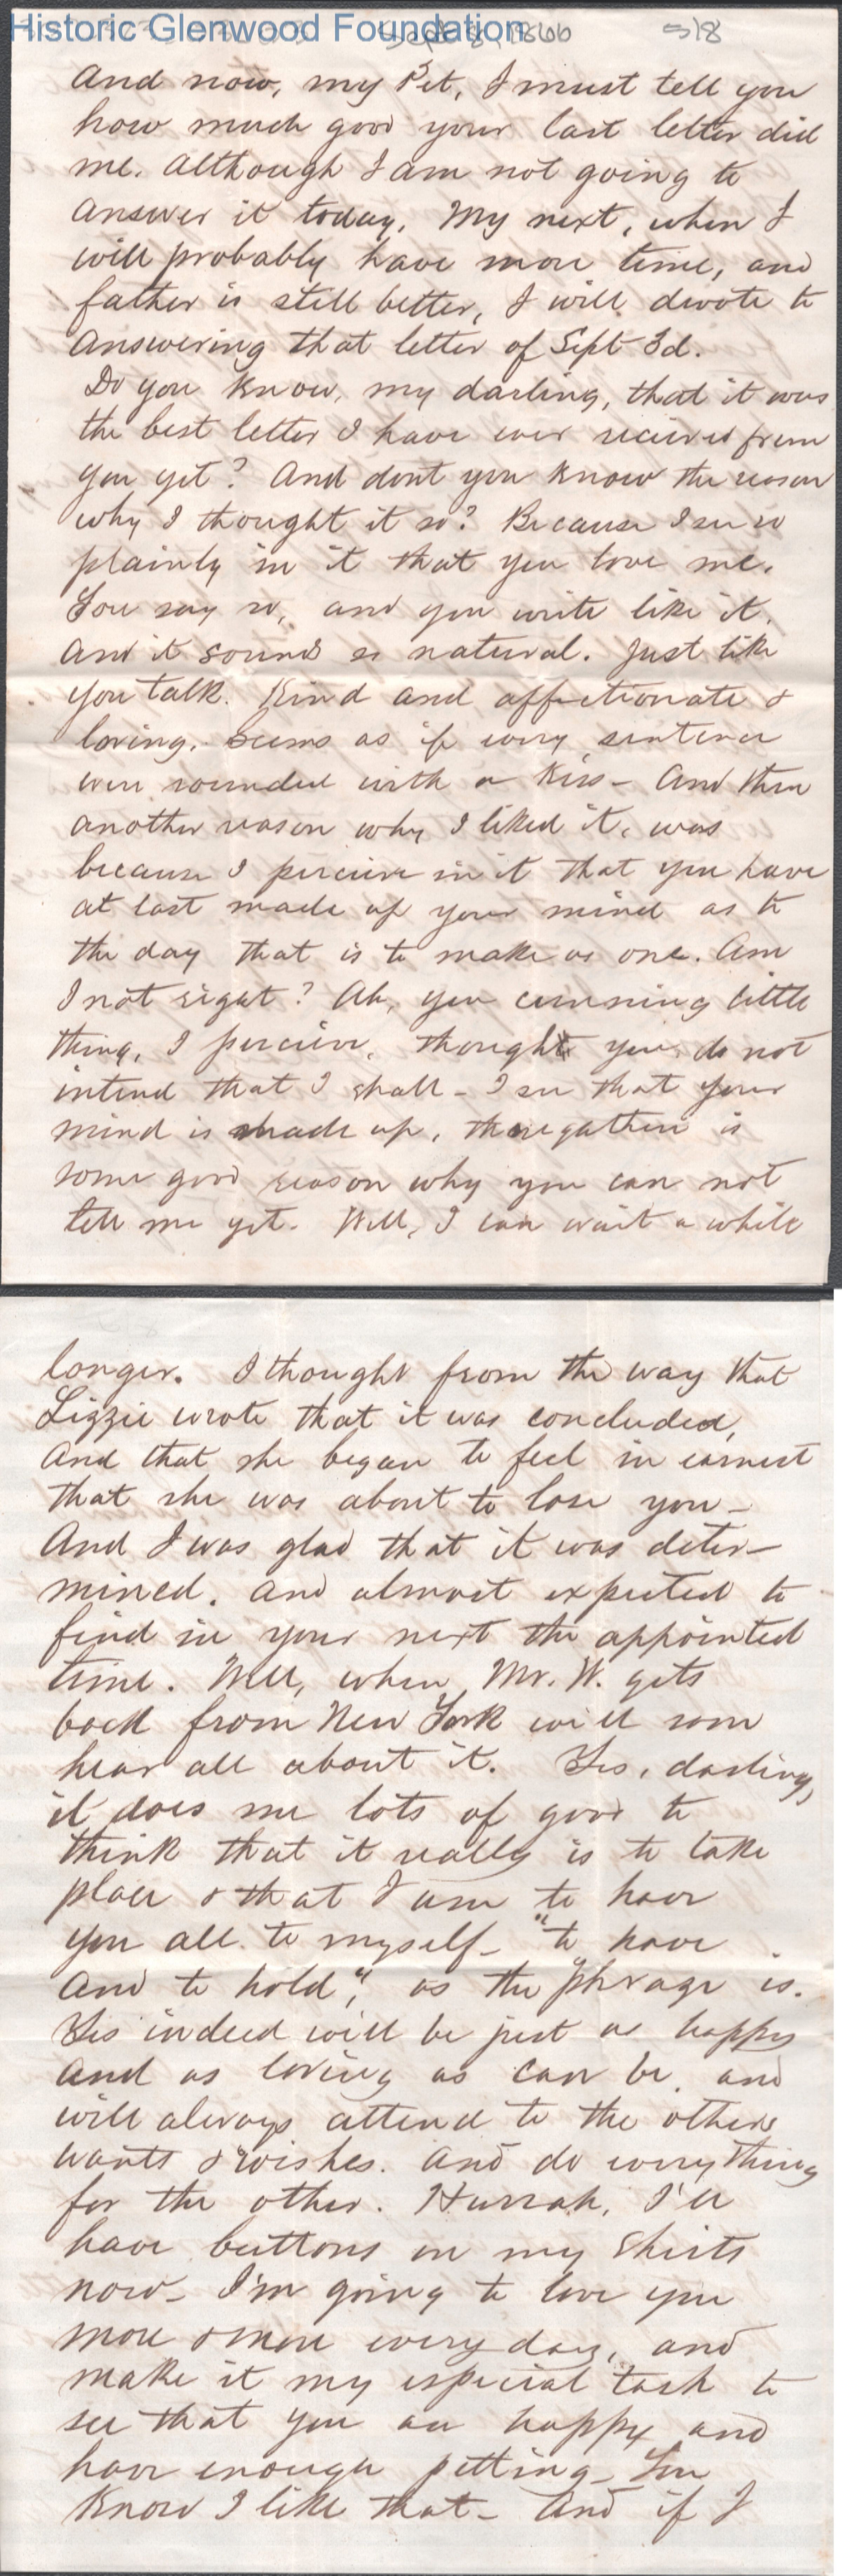 Historic Glenwood Foundation
Sept 8, 1866 5/8
And now, my Pet, I must tell you
how much good your last letter did
me. Although I am not going to
answer it today. My next, when I
will probably have more time, and
father is still better, I will devote to
answering that letter of Sept 3d.
Do you know, my darling, that it was
the best letter I have ever recieved from
you yet? And dont you know the reason
why I thought it so? Because I see so
plainly in it that you love me.
You say so, and you write like it.
And it sounds so natural. Just like
you talk. Kind and affectionate &
loving. Seems as if every sentence
were rounded with a Kiss - And then
another reason why I liked it, was
because I percieve in it that you have
at last made up your mind as to
the day that is to make us one. Am
I not right? Ah, you cunning little
thing, I percieve, thought you do not
intend that I shall - I see that your
mind is made up, there gather is
some good reason why you can not
tell me yet. Well, I can wait a while
longer. I thought from the way that
Lizzie wrote that it was concluded,
And that she began to feel in earnest
that she was about to lose you -
And I was glad that it was deter-
mined. and almost expected to
find in your next the appointed
time. Well, when Mr. W. gets
back from New York will soon
hear all about it. Yes, darling,
it does me lots of good to
think that it really is to take
place & that I am to have
you all to myself - "to have
and to hold", as the phrase is.
Yes indeed will be just as happy
and as loving as can be, and
will always attend to the others
wants & wishes. And do every thing
for the other. Hurrah, I'll
have buttons on my shirts
now - I'm going to love you
more & more every day, and
make it my especial task to
see that you are happy and
have enough petting - You
Know I like that - And if I